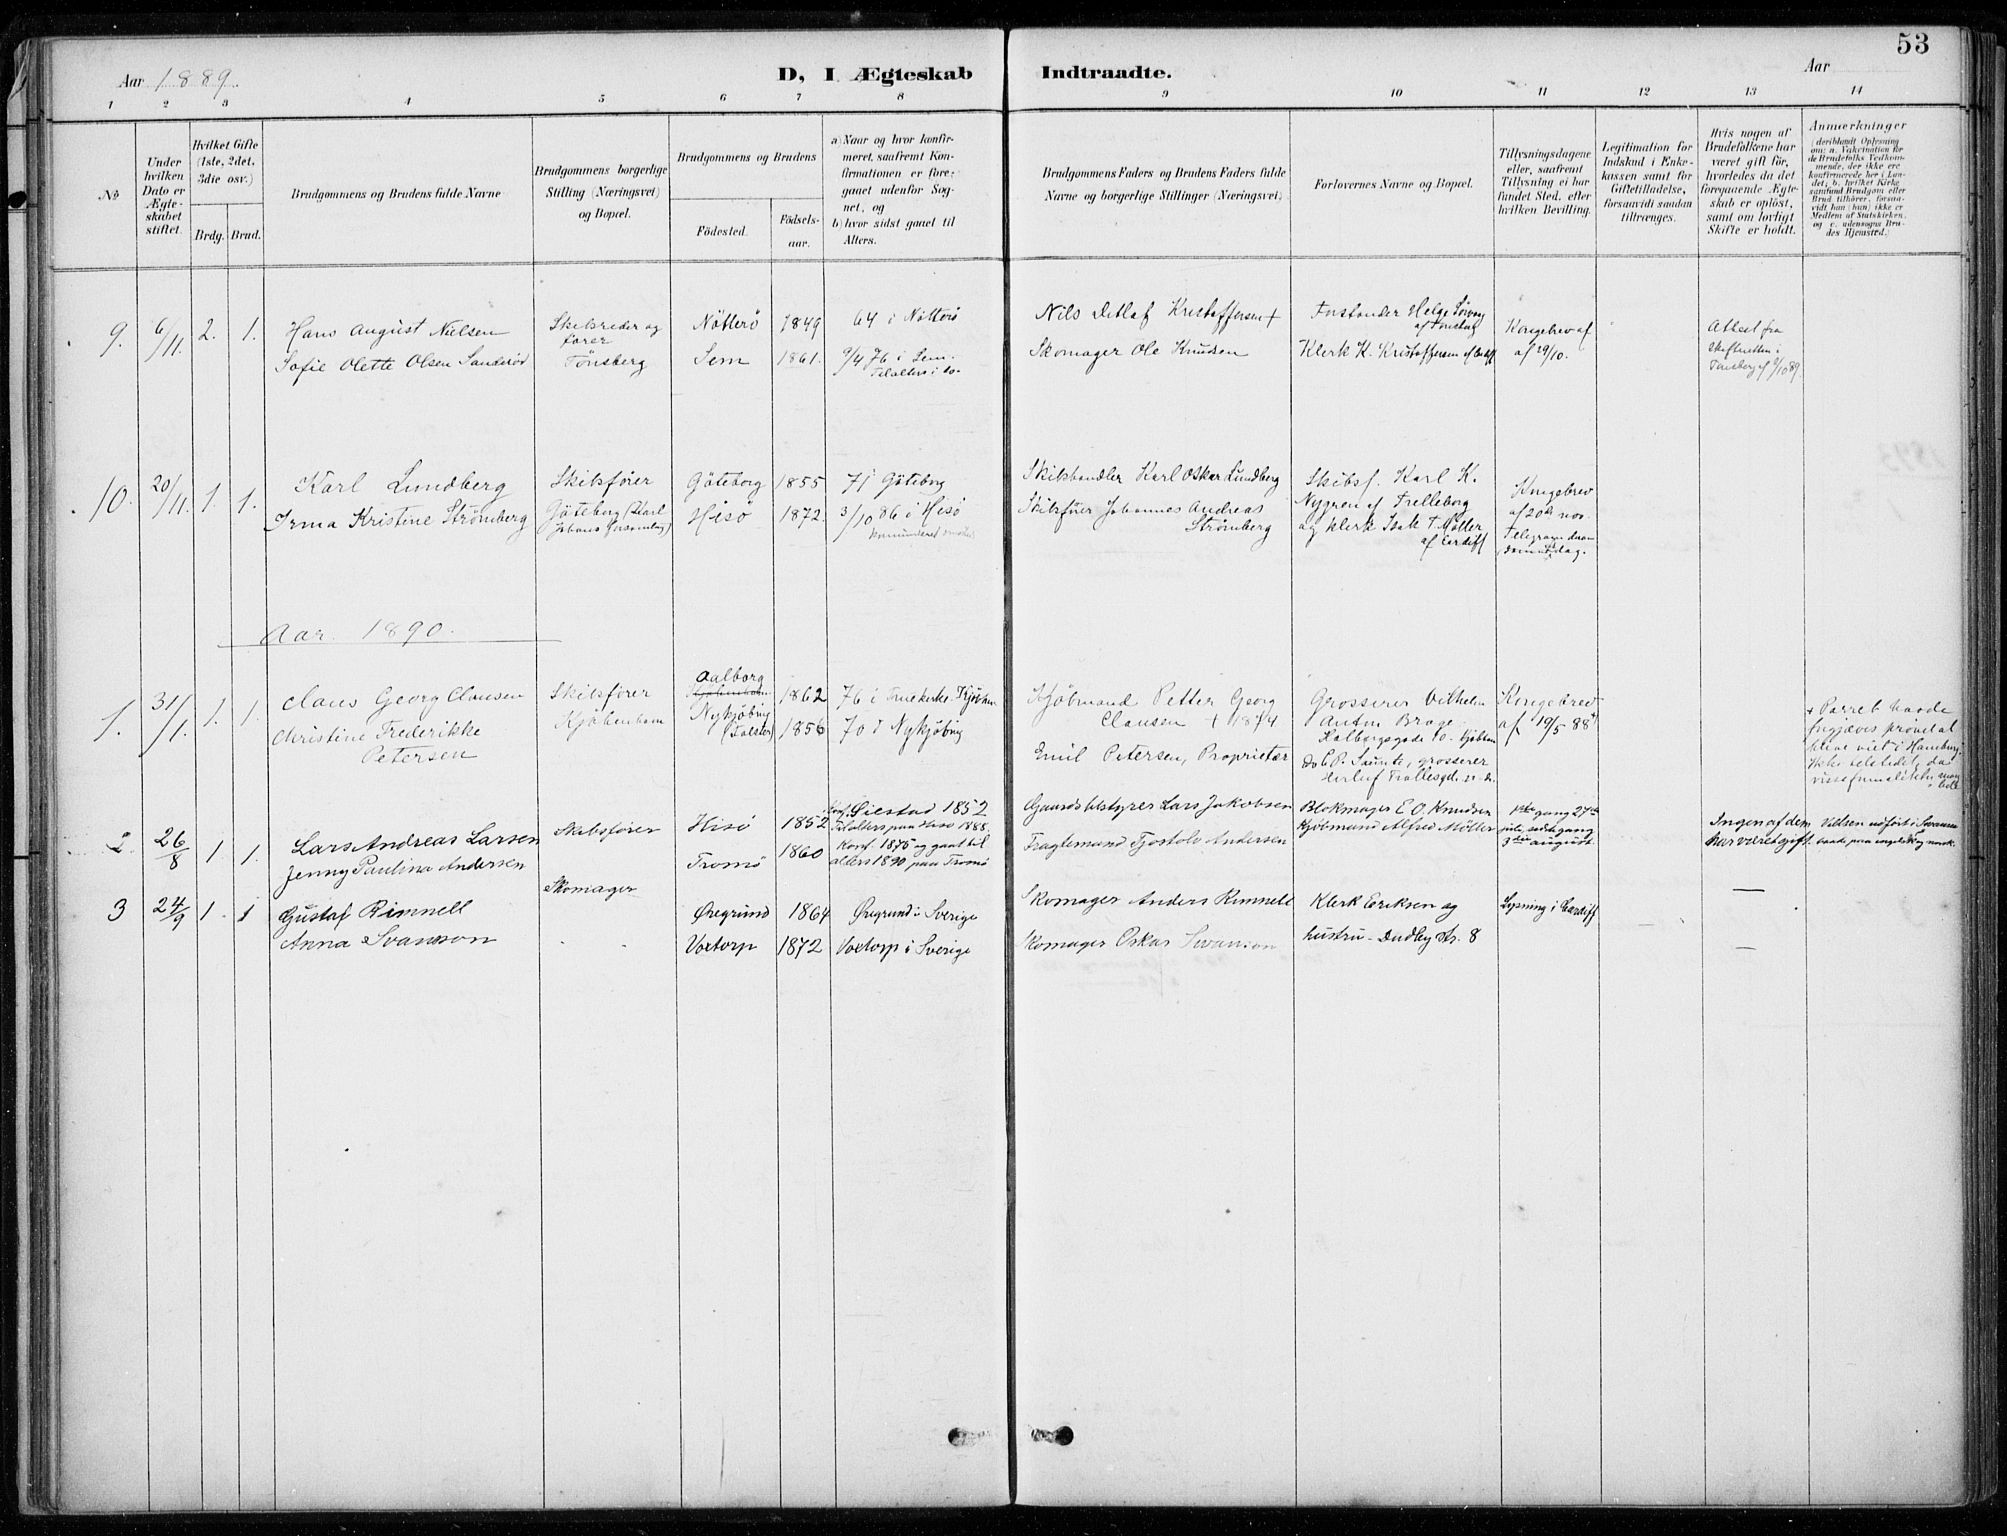 53
Aar 1889.
D, I Ægteskab Indtraadte.
Aar
1 2 3 4 5 6 7 8 9 10 11 12 13 14
No
Under hvilken Dato er Ægteskabet stiftet.
Hvilket Gifte (1ste, 2det, 3die osv.)
Brdg. Brud.
Brudgommens og Brudens fulde Navne
Brudgommens borgerlige Stilling (Næringsvei) og Bopæl.
Brudgommens og Brudens
Födested.
Födselsaar.
a) Naar og hvor konfirmeret, saafremt Konfirmationen er foregaaet udenfor Sognet, og
b) hvor sidst gaaet til Alters.
Brudgommens Faders og Brudens Faders fulde Navne og borgerlige Stillinger (Næringsvei)
Forlovernes Navne og Bopæl.
Tillysningsdagene eller, saafremt Tillysning ei har fundet Sted, efter hvilken Bevilling.
Legitimation for Indskud i Enkekassen samt for Giftetilladelse, forsaavidt saadan tiltrænges.
Hvis nogen af Brudefolkene har været gift för, hvorledes da det foregaaende Ægteskab er oplöst, samt om lovligt Skifte er holdt.
Anmærkninger
(deriblandt Oplysning om: a. Vakcination for de Brudefolks Vedkommende, der ikke ere konfirmerede her i Landet; b. hvilket Kirkesamfund Brudgom eller Brud tilhörer, forsaavidt han (hun) ikke er Medlem af Statskirken, og c. udensogns Brudes Hjemsted.)
9. 6/11. 2. 1.
Hans August Nielsen
Sofie Olette Olsen Sanderöd
Skibsreder og
förer
Tönsberg
Nötterö 1849
Sem 1861.
64 i Nötterö
9/4 76 i Sem.
Tilalters i do-
Nils Detlaf Kristoffersen +
Skomager Ole Knudsen
Forstander Helge
Klerk K. Kristoffersen af Cardiff
Kongebrev af
af 29/10.
Attest fra
Skifteretten i
Tönsberg af 9/10 89.
10. 20/11. 1. 1.
Karl Lundberg
Irma Kristine Strömberg
Skibsförer
Göteborg (Karl
Johans Forsamling)
Göteborg 1855
Hisö 1872.
71 Göteborg
3/10 86 i Hisö
Skibshandler Karl Oskar Lundberg
Skibsförer Johannes Andreas
Strömberg
Skibsf. Karl K.
Nygren af Trelleborg
og Klerk Isak T. Möller
af Cardiff
Kongebrev
af 20de nov.
Telegram
Aar. 1890.
1. 31/1. 1. 1.
Claus Georg Clausen
Christine Frederikke
Petersen
Skibsförer
Kjöbenhavn
Aalborg
Kjöbenhavn
1862
Nykjöbing
(Falster) 1856
76 i Fruekirke. Kjöbhavn
70 i Nykjöbing
Kjöbmand Petter Georg
Clausen + 1874
Emil Petersen, Proprietær
Grosserer Vilhelm
Anton Brage
10 - Kjöbhavn
do C. P. grosserer
Herluf Trollesgd.
Kongebrev
af 19/5 88 +
+ Parret havde
prövet at
blive viet i Hamburg.
Ikke
2. 26/8 1 1.
Lars Andreas Larsen
Jenny Paulina Andersen
Skibsförer
Hisö 1852
Tromö 1860
Konf. Öiestad 1852
Tilalters paa Hisö 1888.
Konf. 1875 og gaat til
alters 1890 paa Tromö
Gaardsbestyrer Lars Jakobsen
Fragtemand Tjostolv Andersen
Blokmager E. O. Knudsen
Kjöbmand Alfred Möller
1ste gang 27de
juli, sidste gang
3die august.
Ingen af dem
har været gift.
Vielsen udfört i Swansea
baade paa engelsk og norsk.
3 24/9 1. 1
Gustaf Rimnell
Anna Svanson
Skomager
Öregrund 1864
Voxtorp 1872
Öregrund i Sverige
Voxtorp i Sverige
Skomager Anders Rimnell
Skomager Oskar Svanson
Klerk Eriksen og
hustru - Dudley str. 8
Lysning i Cardiff
—
—